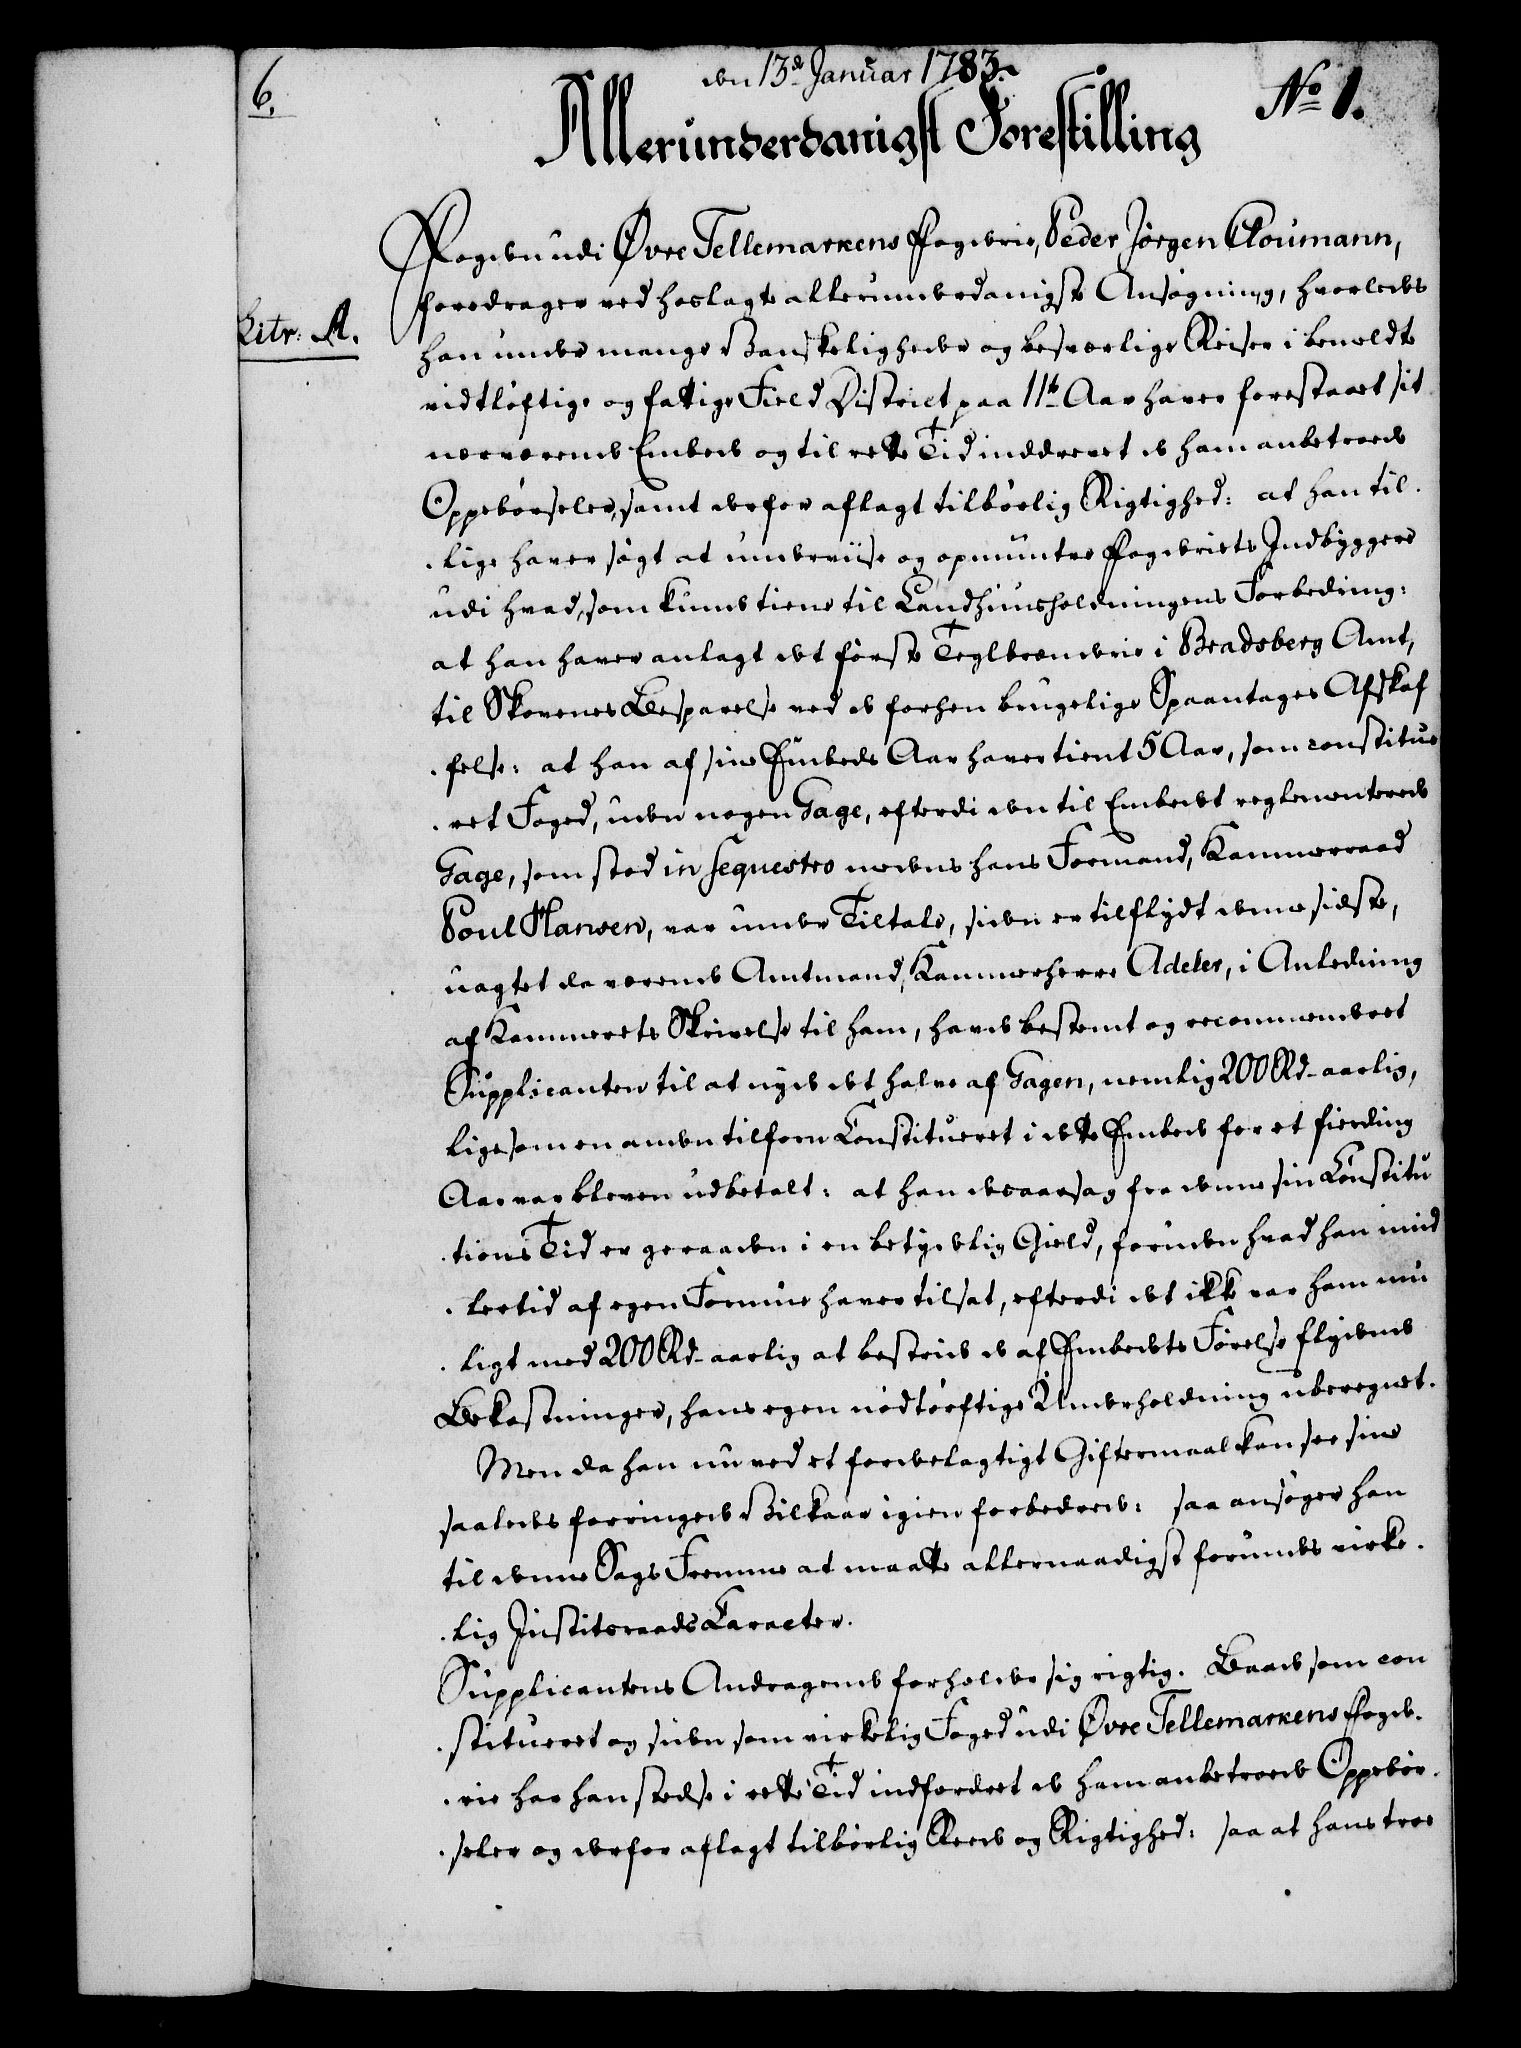 6.
den 13de Januar 1783.
No 1.
Allerunderdanigst Forestilling
Fogden udi Øvre Tellemarkens Fogderie, Peder Jørgen Cloumann,
foredrager ved hoslagte allerunderdanigste Ansøgning, hvorledes
Litr. A.
han under mange Vanskeligheder og besværlige Reiser i bemeldte
vidtløftige og fattige Field District paa 11te Aar haver forestaaet sit
nærværende Embede og til rette Tid inddrevet de ham anbetroede
Oppebørseler, samt derfor aflagt tilbørlig Rigtighed: at han til¬
¬lige haver søgt at underviise og opmuntre Fogderiets Indbyggere
udi hvad, som kunde tiene til Landhuusholdningens Forbedring:
at han haver anlagt det første Teglbrænderie i Bradsberg Amt,
til Skovenes Besparelse ved de forhen brugelige Spaantages Afskaf
¬felse: at han af sine Embeds Aar haver tient 5 Aar, som constitue
¬ret Foged, uden nogen Gage, efterdi den til Embedet reglementerede
Gage, som stod in sequestro medens hans Formand, Kammerraad
Poul Hansen, var under Tiltale, siden er tilflydt denne sidste,
uagtet da værende Amtmand, Kammerherre Adeler, i Anledning
af Kammerets Skrivelse til ham, havde bestemt og recommenderet
Supplicanten til at nyde det halve af Gagen, nemlig 200 Rd. aarlig,
ligesom en anden tilforn Constitueret i dette Embede for et fierding
Aar var bleven udbetalt: at han deraarsag fra denne sin Constitu
¬tions Tid er geraaden i en betydelig Gield, foruden hvad han imid
¬lertid af egen Formue haver tilsat, efterdi det ikke var ham mu
¬ligt med 200 Rd. aarlig at bestride de af Embedets Førelse flydende
Bekostninger, hans egen nødtørftige Underholdning uberegnet.
Men da han nu ved et fordelagtigt Giftermaal kan see sine
saaledes forringede Vilkaar igien forbedrede: saa ansøger han
til denne Sags Fremme at maatte allernaadigst forundes virke¬
¬lig Justitsraads Caracter.
Supplicantens Andragende forholder sig rigtig. Baade som con
¬stitueret og siden som virkelig Foged udi Øvre Tellemarkens Fogde¬
¬rie har han stedse i rette Tid indfordret de ham anbetroede Oppebør¬
¬seler og derfor aflagt tilbørlig Reede og Rigtighed: saa at hans troe